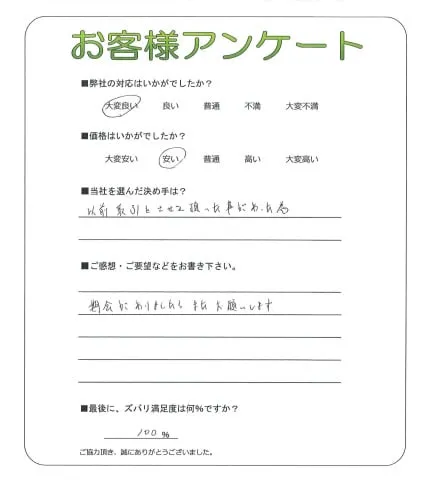 お客様アンケート
■弊社の対応はいかがでしたか？
大変良い 良い 普通 不満 大変不満
■価格はいかがでしたか？
大変安い 安い 普通 高い 大変高い
■当社を選んだ決め手は？
以前取引とさせて頂った事があった為
■ご感想・ご要望などをお書き下さい。
機会がありましたらまたお願いします
■最後に、ズバリ満足度は何％ですか？
100％
ご協力頂き、誠にありがとうございました。